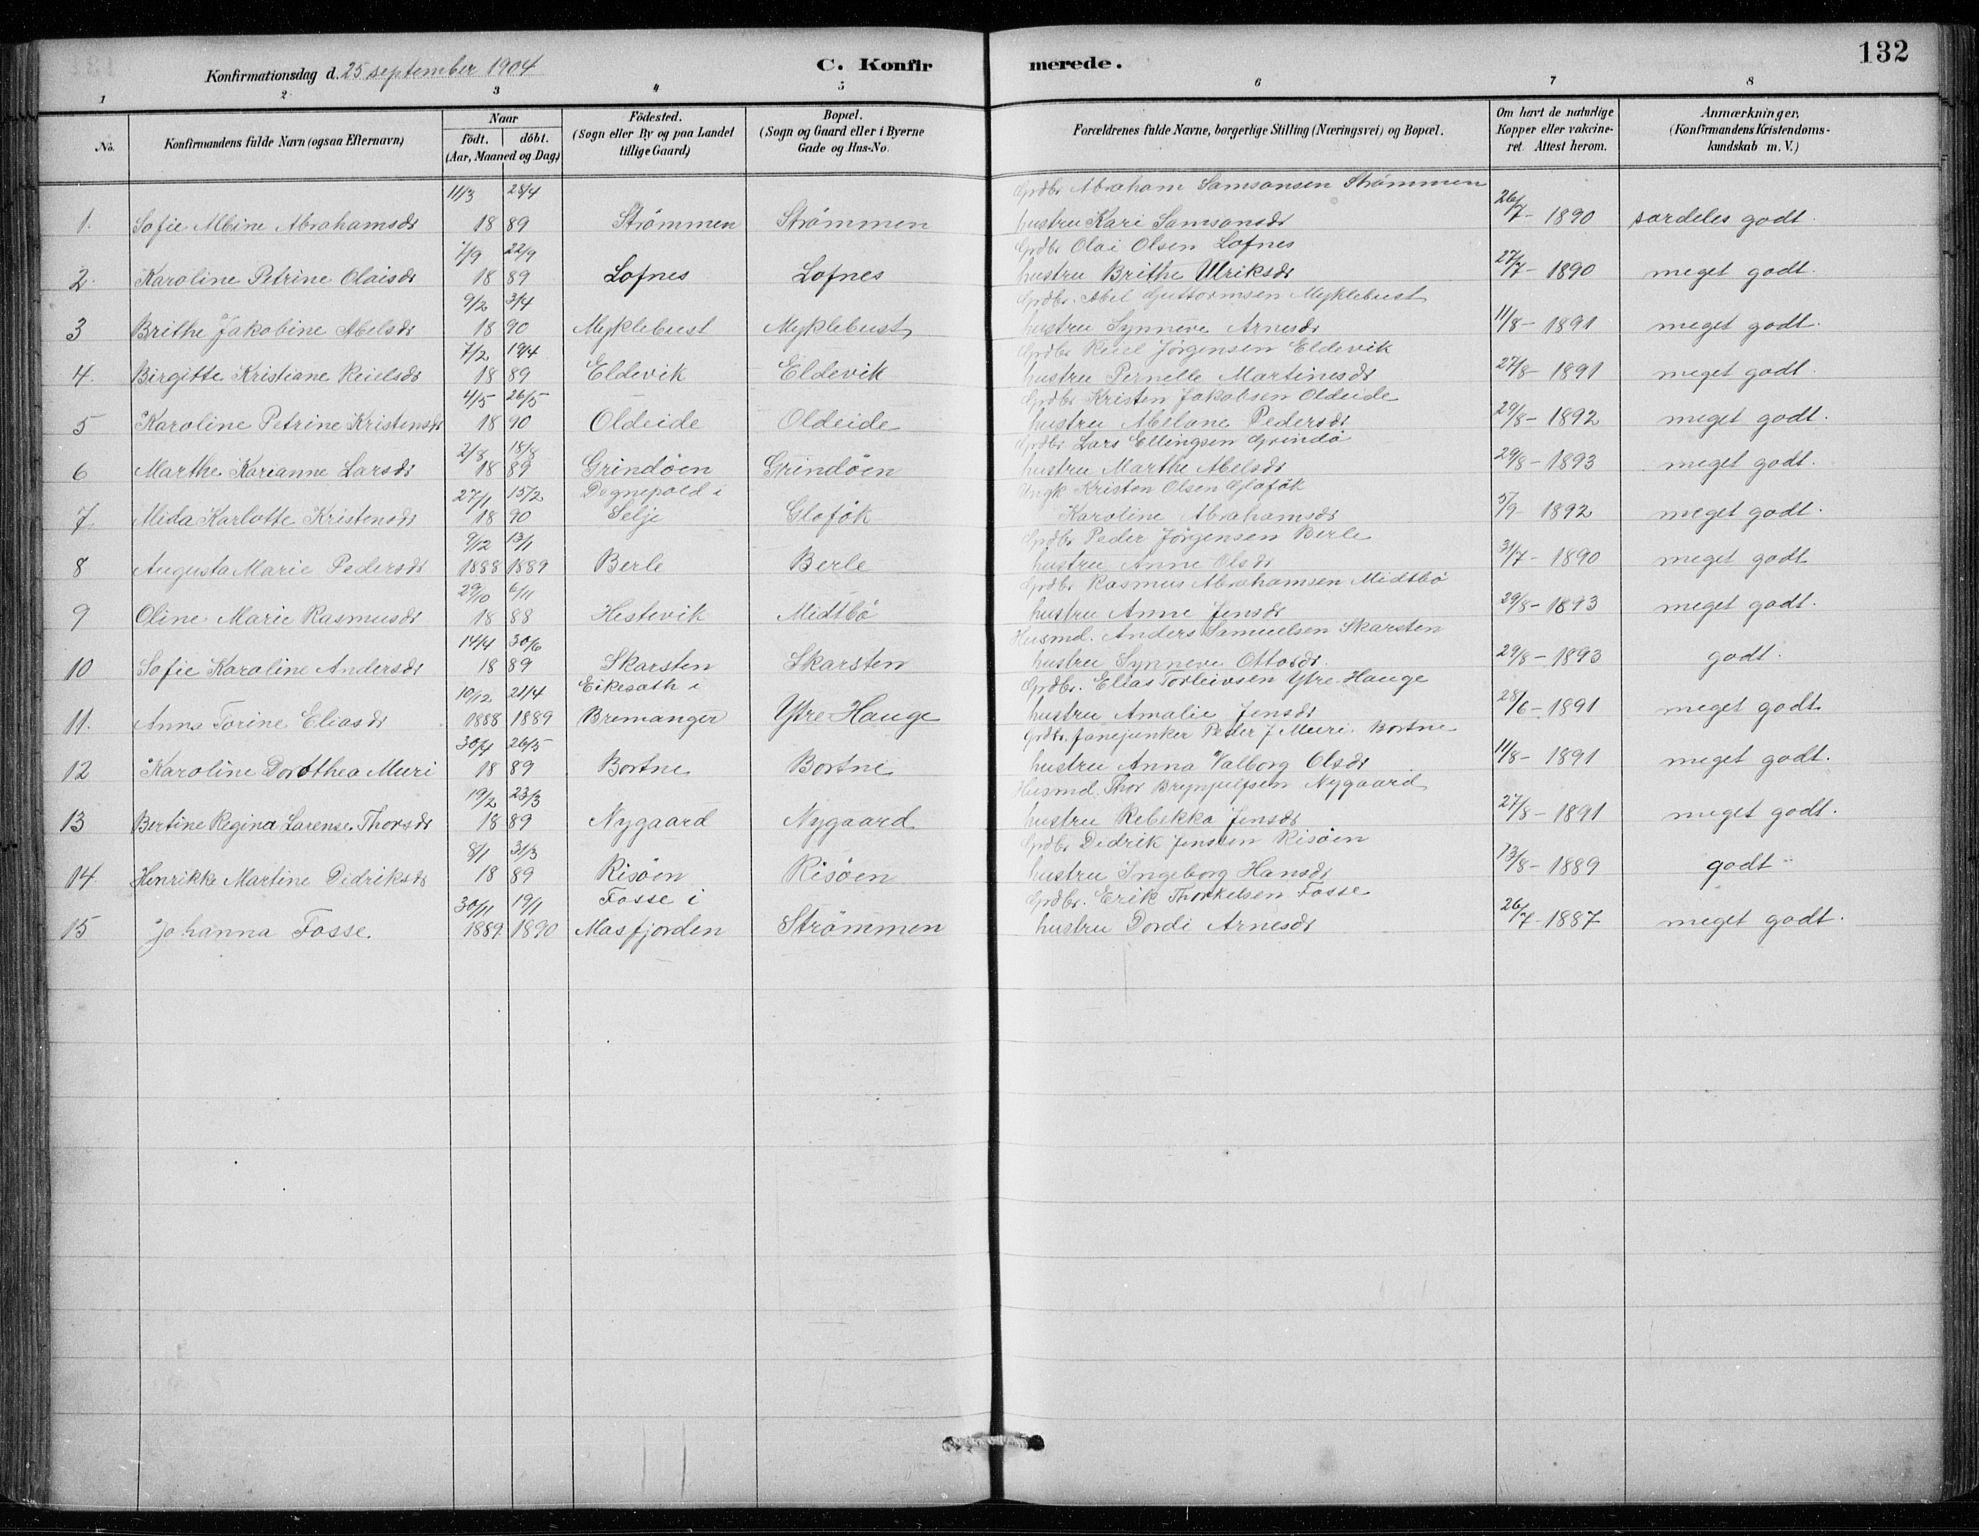 132
Konfirmationsdag d. 25 september 1904
C. Konfirmerede.
1 2 3 4 5 6 7 8
No.
Konfirmandens fulde Navn (ogsaa Efternavn)
Naar
født. døbt.
(Aar, Maaned og Dag)
Födested.
(Sogn eller By og paa Landet
tillige Gaard)
Bopæl.
(Sogn og Gaard eller i Byerne
Gade og Hus-No.
Forældrenes fulde Navne, borgerlige Stilling (Næringsvei) og Bopæl.
Om havt de naturlige
Kopper eller vakcine-
ret. Attest herom.
Anmærkninger.
(Konfirmandens Kristendoms-
kundskab m. V.)
11/3 28/4 Grdbr. Abraham Samsonsen Strømmen
1. Sofie Albine Abrahamsdr 18 89 Strømmen Strømmen hustru Kari Samsonsdr 26/7 - 1890 særdeles godt.
1/9 22/9 Grdbr Olai Olsen Lofnes
2. Karoline Petrine Olaisdr 18 89 Lofnes Lofnes hustru Brithe Ulriksdr 27/7 - 1890 meget godt.
9/2 3/4 Grdbr. Abel Guttormsen Myklebust
3 Brithe Jakobine Abelsdr 18 90 Myklebust Myklebust hustru Synneve Arnesdr 11/8 - 1891 meget godt.
7/2 19/4 Grdbr Reiel Jørgensen Eldevik
4. Birgitte Kristiane Reielsdr 18 89 Eldevik Eldevik hustru Pernelle Martinesdr 27/8 - 1891 meget godt.
4/5 26/5 Grdbr Kristen Jakobsen Oldeide
5 Karoline Petrine Kristensdr 18 90 Oldeide Oldeide hustru Abelone Pedersdr 29/8 - 1892 meget godt.
2/8 18/8 Grdbr Lars Ellingsen Grindö
6 Marthe Karianne Larsdr 18 89 Grindöen Grindöen hustru Marthe Abelsdr 29/8 - 1893 meget godt.
27/1 15/2 Degnepold i Ungk Kristen Olsen Gloføk
7 Mida Karlotte Kristensdr 18 90 Selje Gloføk Karoline Abrahamsdr 5/9 - 1892 meget godt.
9/12 13/1 Grdbr Peder Jørgensen Berle
8 Augusta Marie Pedersdr 1888 1889 Berle Berle hustru Anne Olsdr 31/7 - 1890 meget godt
29/10 6/11 Grdbr Rasmus Abrahamsen Midtbö
9 Oline Marie Rasmusdr 18 88 Hestevik Midtbö hustru Anne Jensdr 29/8 - 1893 meget godt.
14/4 30/6 Husmd. Anders Samuelsen Skarsten
10 Sofie Karoline Andersdr 18 89 Skarsten Skarsten hustru Synneve Ottosdr. 29/8 - 1893 godt.
10/12 21/4 Eikesæth i Grdbr. Elias Torleivsen Ytre Hauge
11. Anna Torine Eliasdr 1888 1889 Bremanger Ytre Hauge hustru Amalie Jensdr 28/6 - 1891 meget godt.
30/4 26/5 Grdbr. Peder J Muri. Bortne
12 Karoline Dorothea Muri 18 89 Bortne Bortne hustru Anna Valborg Olsdr 11/8 - 1891 meget godt.
19/2 23/3 Husmd. Thor Brynjulfsen Nygaard
13 Bertine Regina Larense Thorsdr 18 89 Nygaard Nygaard hustru Rebekka Jensdr 27/8 - 1891 meget godt.
8/1 31/3 Grdbr Didrik Jenssen Risöen
14. Henrikke Martine Didriksdr 18 89 Risöen Risöen hustru Ingeborg Hansdr 13/8 - 1889 godt
30/11 19/1 Fosse i Grdbr. Erik Thorkelsen Fosse
15 Johanna Fosse. 1889 1890 Masfjorden Strømmen hustru Dordi Arnesdr 26/7 - 1887 meget godt.